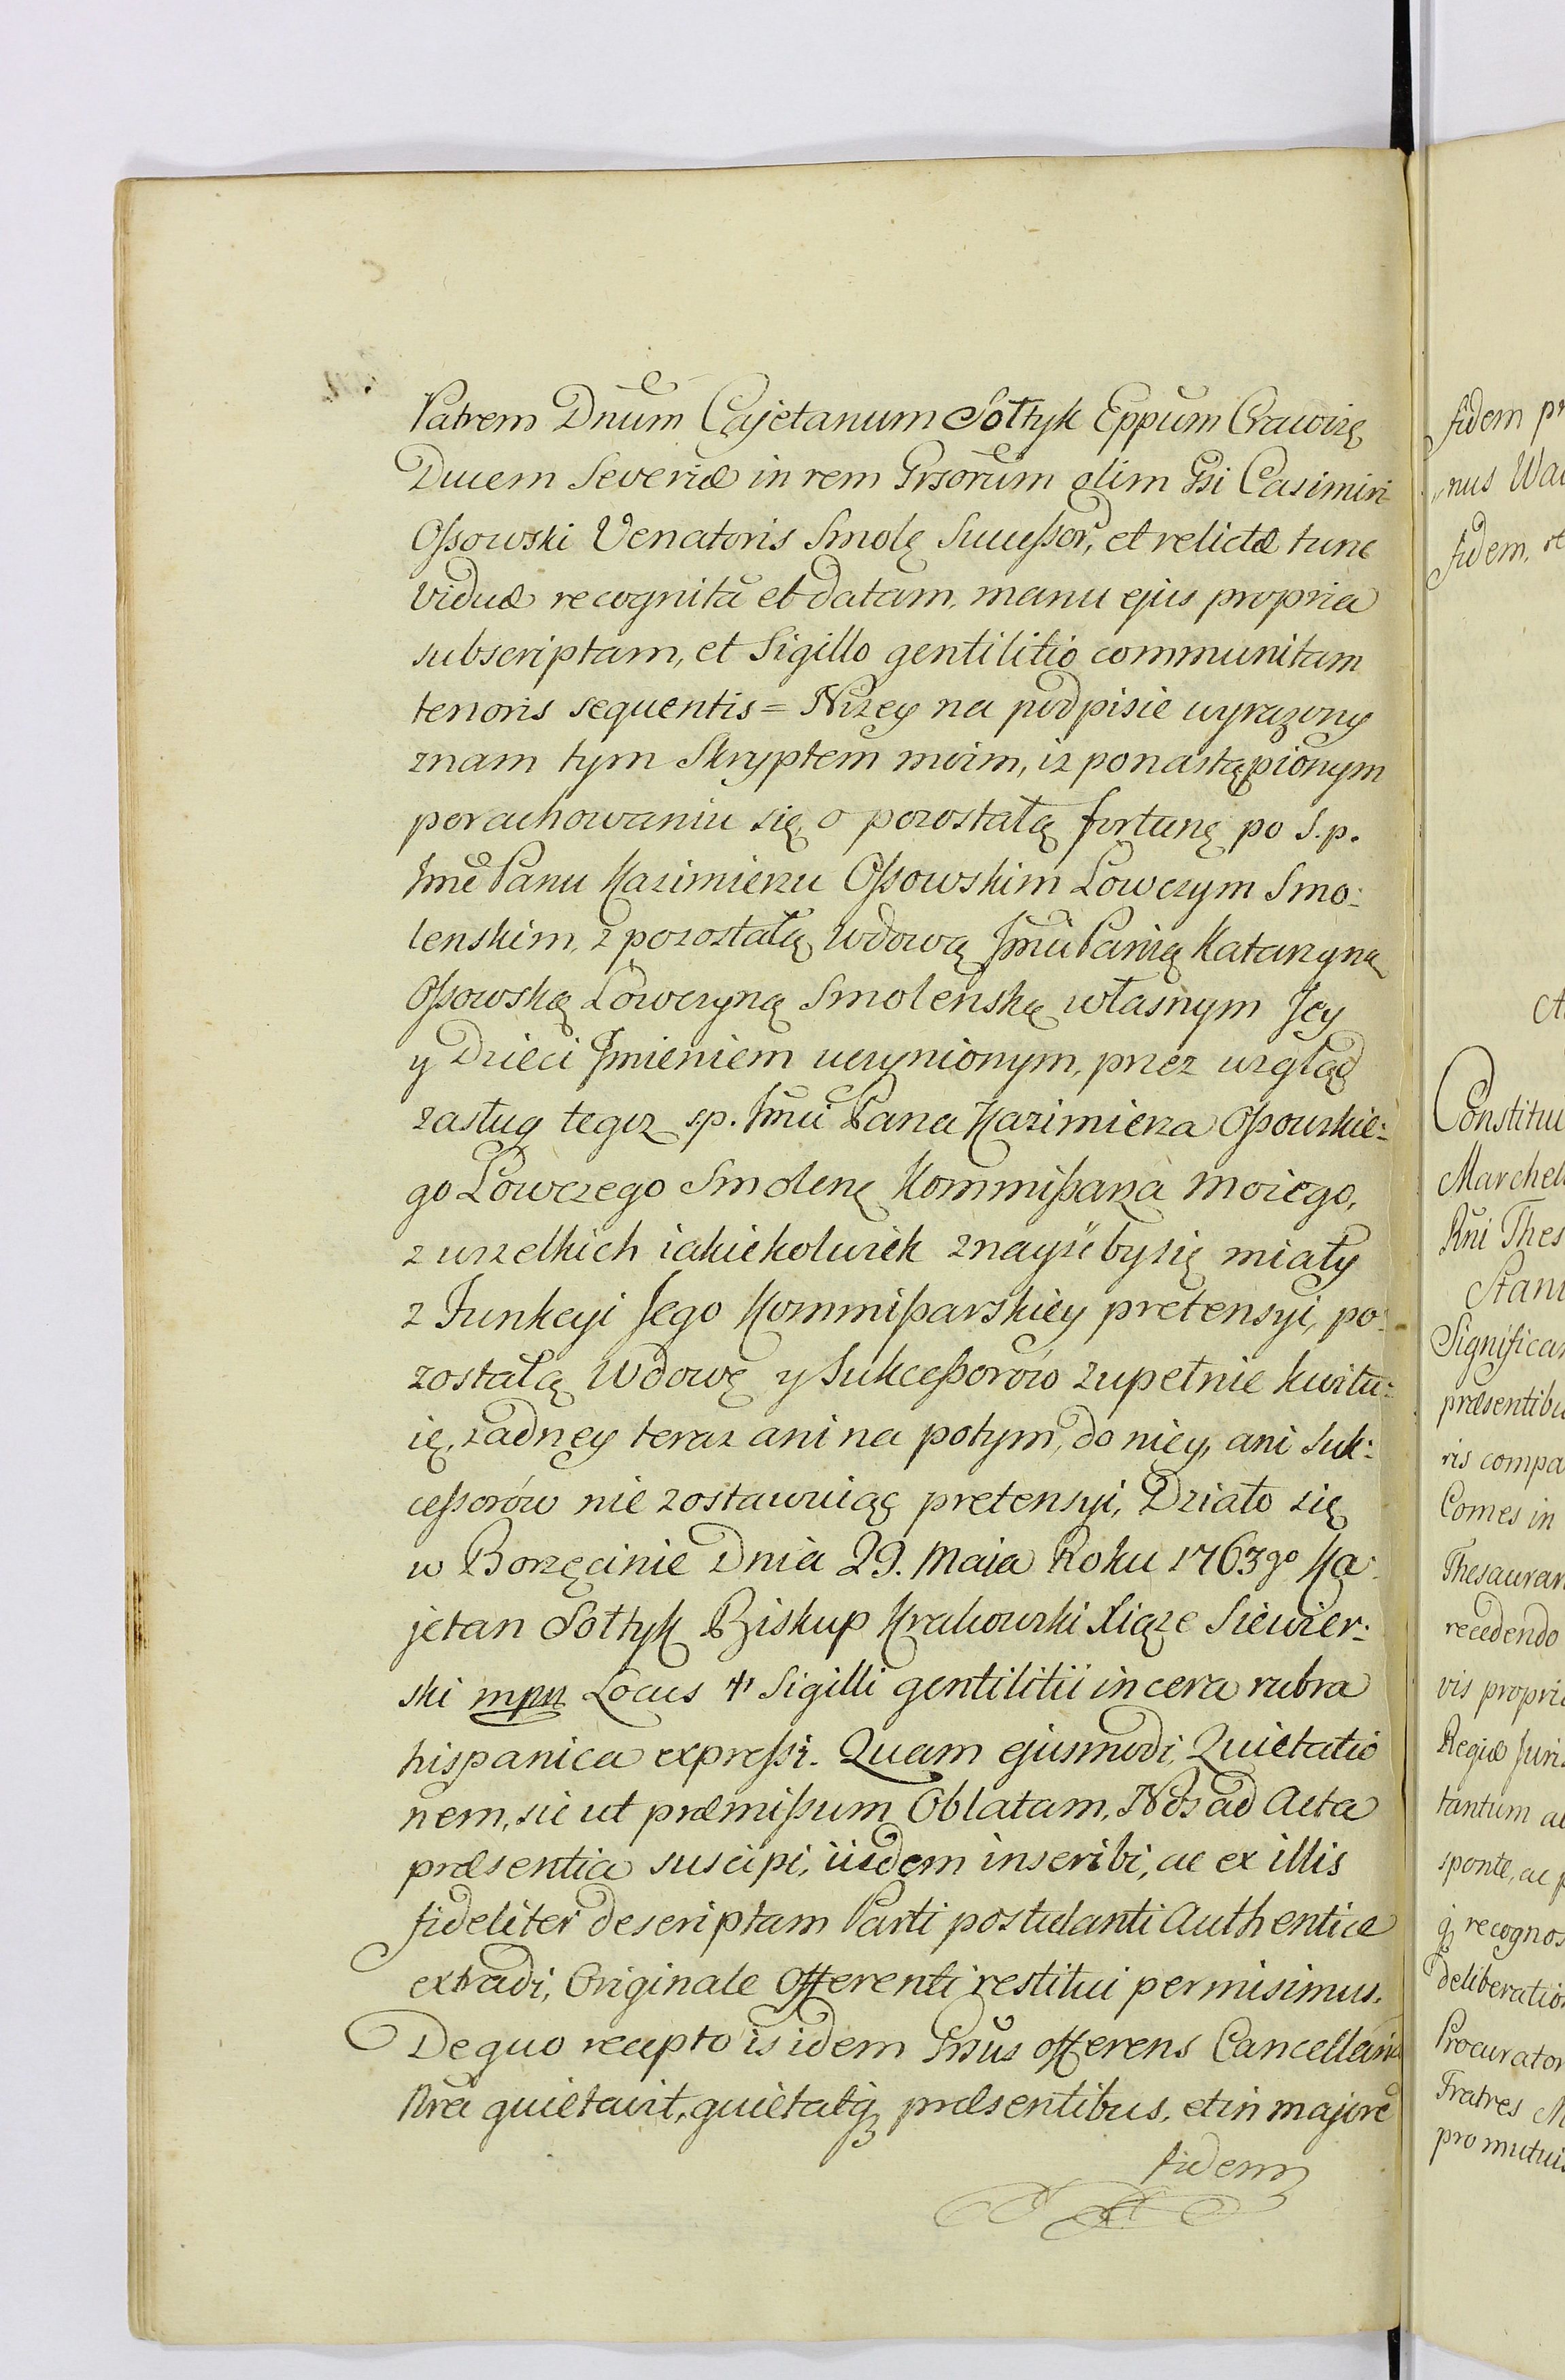 Patrem Dnum Cajetanum Sołtyk Eppum Cracoviȩ
Ducem Severiæ in rem Grsorum olim Gsi Casimiri
Oſsowski Venatoris Smolȩ Succeſsor, et relictæ tunc
Viduæ recognitã et datam, manu ejus propria
subscriptam, et Sigillo gentilitio communitam
tenoris sequentis = Nizey na podpisie wyrazony
znam tym Skryptem moim, iz ponastąpionym
porachowaniu się, o pozostałą fortunę po S. p.
Jmć Panu Kazimierzu Oſsowskim Łowczym Smo:
lenskim, z pozostałą Wdową Jmći Panią Katarzyną
Oſsowską Łowczyną Smolenską własnym Jey
y Dzieci Jmieniem uczynionym, przez wzgląd
zasług tegoz s.p. Jmći Pana Kazimierza Oſsowskie:
go Łowczego Smolenȩ Kommiſsarza moiego,
z wszelkich iakiekolwiek znayśćby się miały
z Funkcyi Jego Kommiſsarskiey pretensyi, po:
zostałą Wdowę y Sukceſsorów zupełnie kwitu:
ię, zadney teraz ani na potym, do niey, ani Suk:
ceſsorów nie zostawuiąc pretensyi, Działo się
w Borzęcinie Dnia 29. Maia Roku 1763go Ka:
jetan Sołtyk Biskup Krakowski Xiąze Siewier:
ski mpp Locus ✝ Sigilli gentilitii in cera rubra
hispanica expreſsi. Quam ejusmodi Quietatio
nem, sic ut præmiſsum Oblatam, Nos ad Acta
præsentia suscipi, iisdem inscribi, ac ex illis
fideliter descriptam Parti postulanti Authenticè
extradi, Originale Offerenti restitui permisimus.
De quo recepto is idem Grsus offerens Cancellariã
Nrã quietavit, quietatq; præsentibus, et in majorẽ
fidem
fidem
nus
fidem,
Constitu
Marchel
Rni Thes
Stani
Significa
præsentibu
ris compa
Comes in
Thesaurar
recedendo
vis propri
Regiæ Juri
tantum
sponte, ac
q; recognos
deliberatio
Procurator
Fratres
pro mutuis